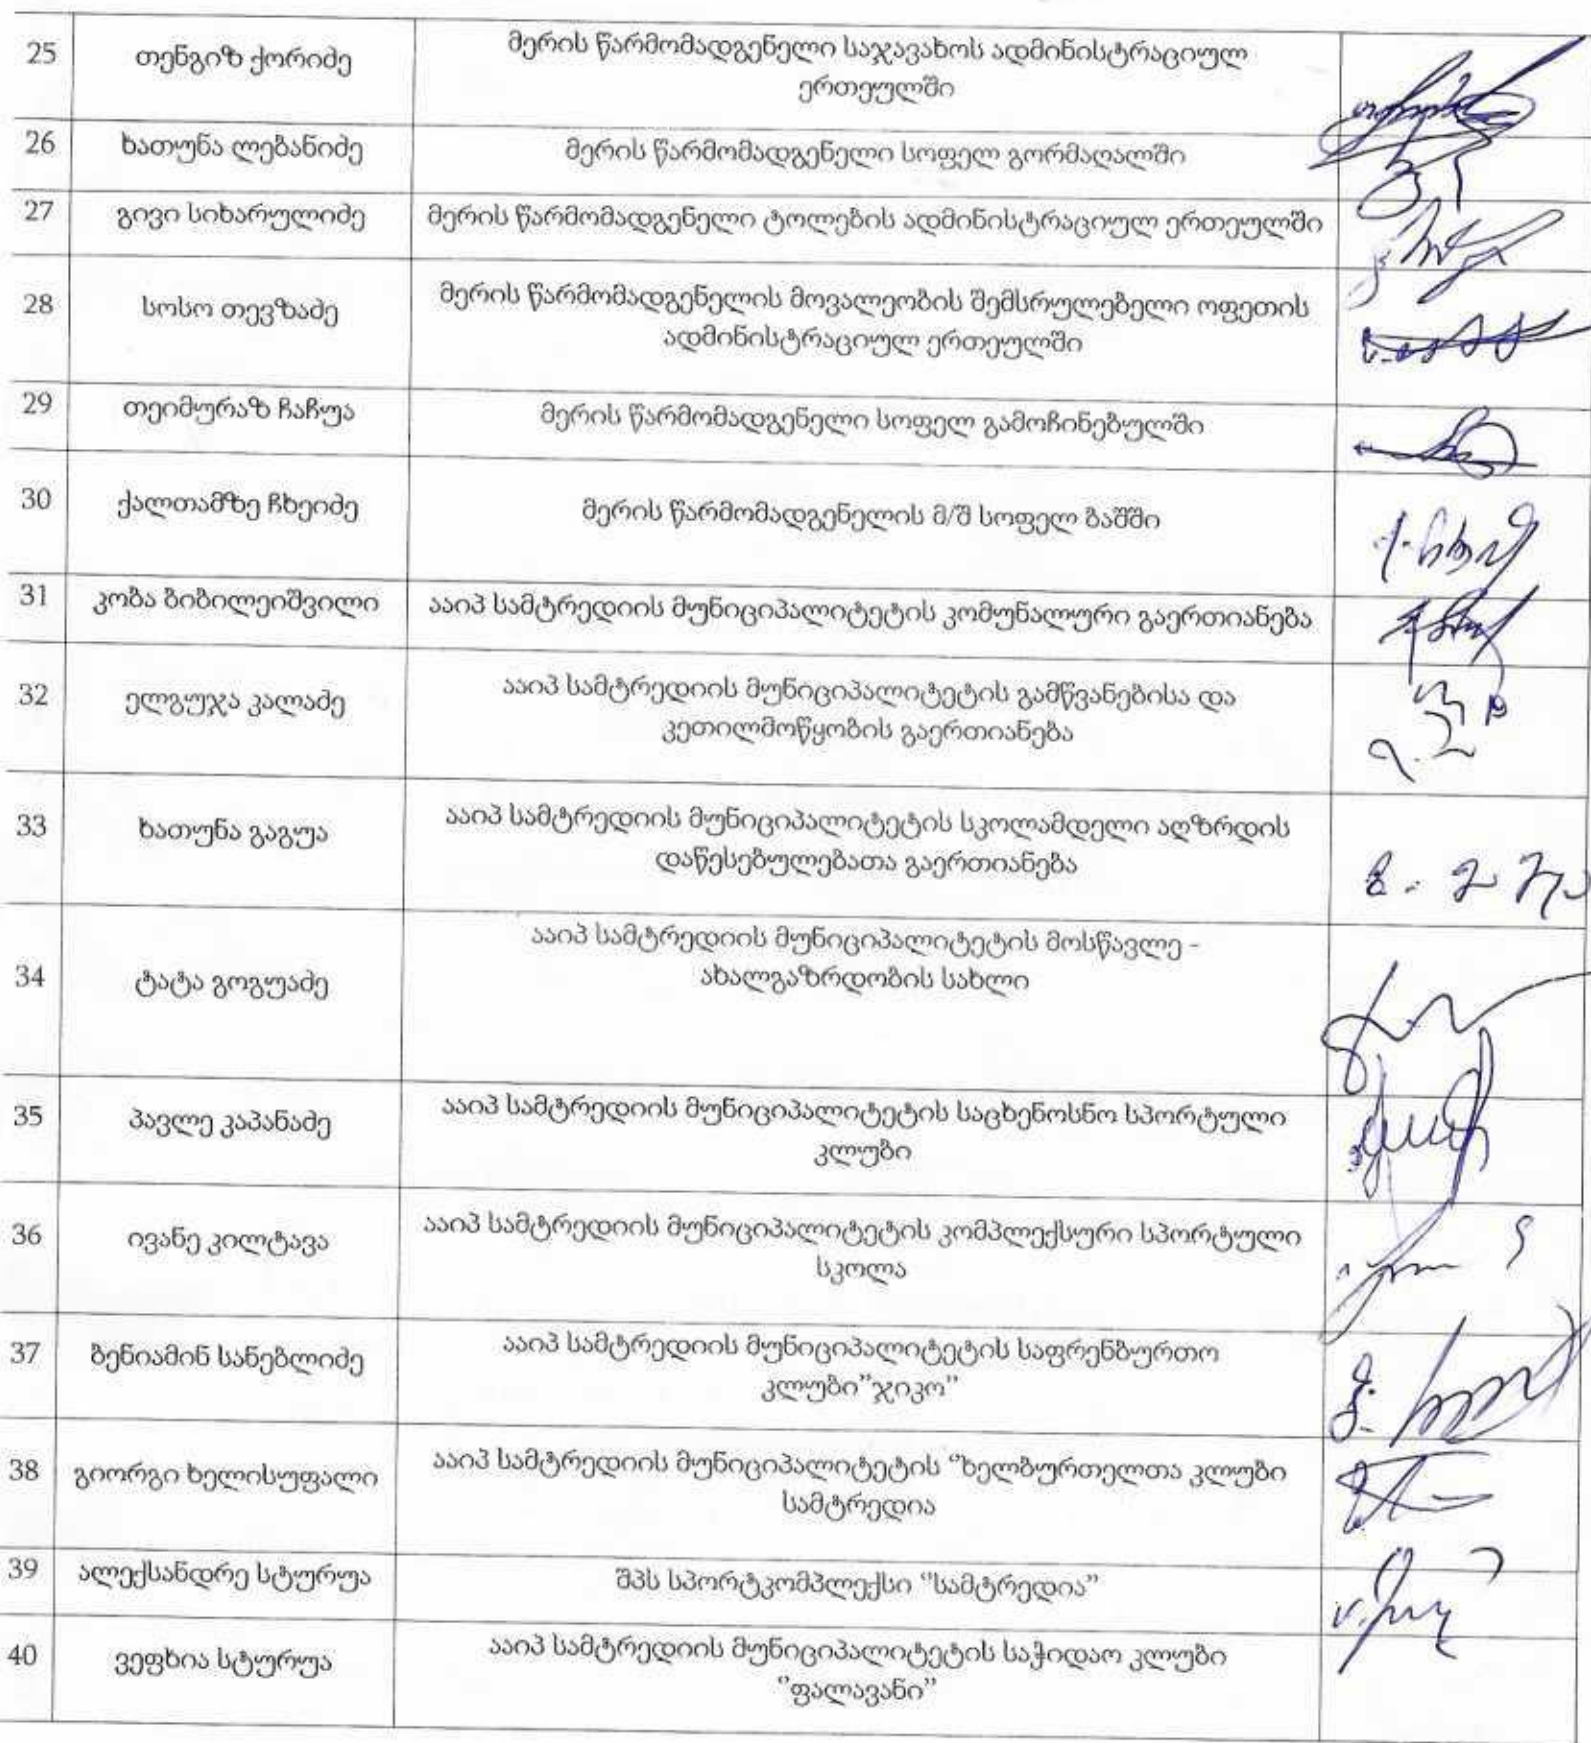 25 თენგიზ ქორიძე მერის წარმომადგენელი საჯავახოს ადმინისტრაციულ
ერთეულში
26 ხათუნა ლებანიძე მერის წარმომადგენელი სოფელ გორმაღალში
27 გივი სიხარულიძე მერის წარმომადგენელი ტოლების ადმინისტრაციულ ერთეულში
28 სოსო თევზაძე მერის წარმომადგენელის მოვალეობის შემსრულებელი ოფეთის
ადმინისტრაციულ ერთეულში
29 თეიმურაზ ჩაჩუა მერის წარმომადგენელი სოფელ გამოჩინებულში
30 ქალთამზე ჩხეიძე მერის წარმომადგენელის მ/შ სოფელ ბაშში
31 კობა ბიბილეიშვილი ააიპ სამტრედიის მუნიციპალიტეტის კომუნალური გაერთიანება
32 ელგუჯა კალაძე ააიპ სამტრედიის მუნიციპალიტეტის გამწვანებისა და
კეთილმოწყობის გაერთიანება
33 ხათუნა გაგუა ააიპ სამტრედიის მუნიციპალიტეტის სკოლამდელი აღზრდის
დაწესებულებათა გაერთიანება
34 ტატა გოგუაძე ააიპ სამტრედიის მუნიციპალიტეტის მოსწავლე -
ახალგაზრდობის სახლი
35 პავლე კაპანაძე ააიპ სამტრედიის მუნიციპალიტეტის საცხენოსნო სპორტული
კლუბი
36 ივანე კილტავა ააიპ სამტრედიის მუნიციპალიტეტის კომპლექსური სპორტული
სკოლა
37 ბენიამინ სანებლიძე ააიპ სამტრედიის მუნიციპალიტეტის საფრენბურთო
კლუბი"ჯიკო"
38 გიორგი ხელისუფალი ააიპ სამტრედიის მუნიციპალიტეტის "ხელბურთელთა კლუბი
სამტრედია
39 ალექსანდრე სტურუა შპს სპორტკომპლექსი "სამტრედია"
40 ვეფხია სტურუა ააიპ სამტრედიის მუნიციპალიტეტის საჭიდაო კლუბი
"ფალავანი"